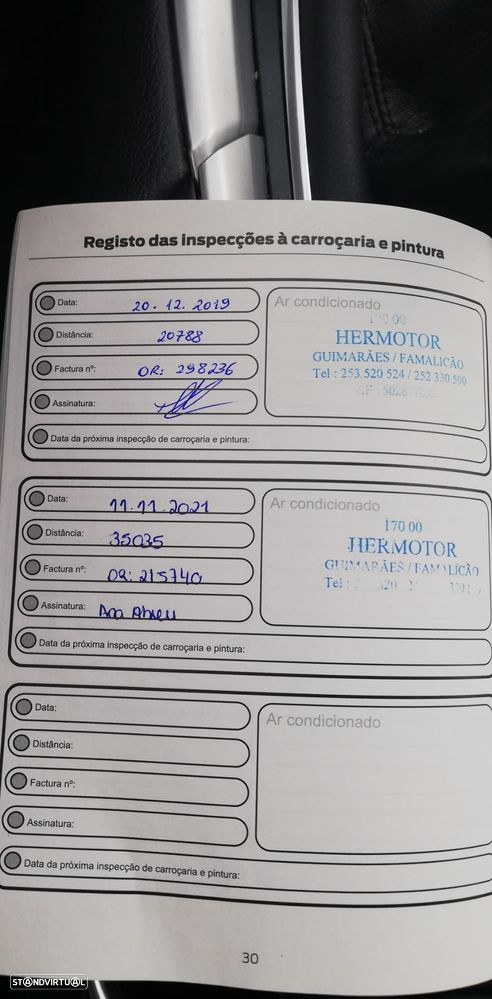 Registo das inspecções à carroçaria e pintura
Data: 20.12.2019
Distância: 20788
Factura nº: OR: 298236
Assinatura:
Data da próxima inspecção de carroçaria e pintura:
Ar condicionado
170 00
HERMOTOR
GUIMARÃES / FAMALICÃO
Tel : 253 520 524 / 252 330 590
Data: 11.11.2021
Distância: 35035
Factura nº: OR: 215740
Assinatura: Ana Abreu
Data da próxima inspecção de carroçaria e pintura:
Ar condicionado
170 00
HERMOTOR
GUIMARÃES / FAMALICÃO
Tel :
Data:
Distância:
Factura nº:
Assinatura:
Data da próxima inspecção de carroçaria e pintura:
Ar condicionado
30
STANDVIRTUAL